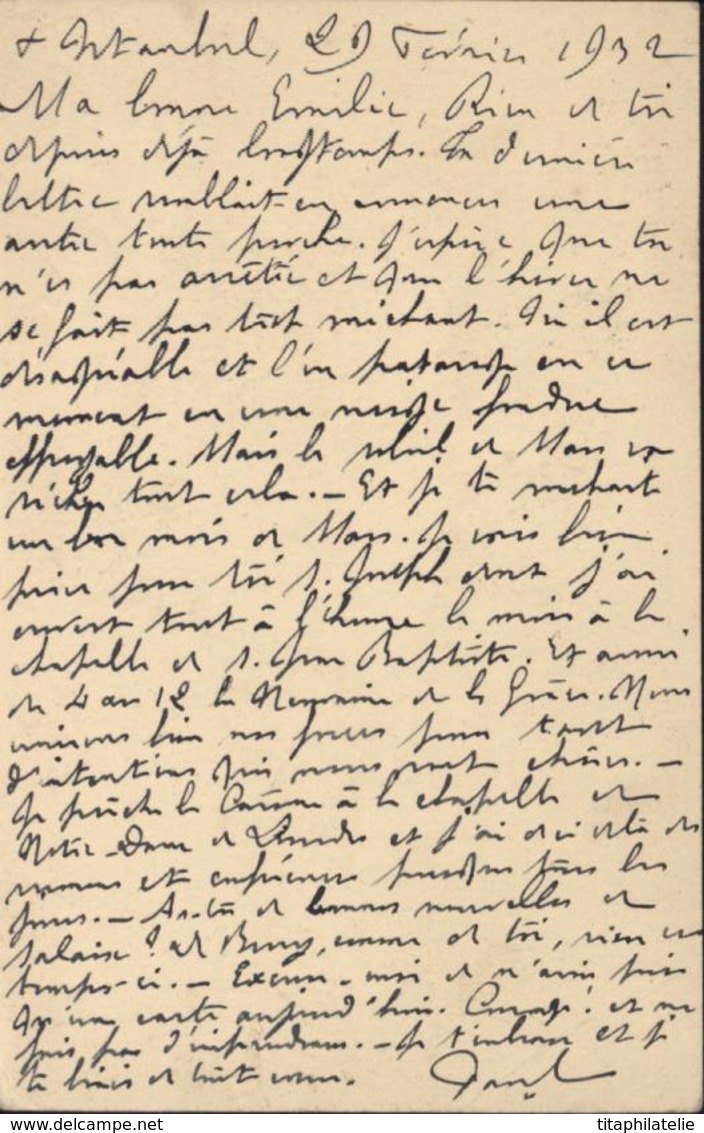 + Istanbul, 29 Février 1932
Ma bonne Emilie, Rien de toi
depuis déjà longtemps. Ta dernière
lettre semblait en annoncer une
autre toute proche. J'espère que tu
n'es pas arrêtée et que l'hiver ne
se fait pas trop méchant. Ici il est
désagréable et l'on patauge en ce
moment en une neige fondue
effroyable. Mais le soleil de Mars va
sécher tout cela. - Et je te souhaite
un bon mois de Mars. Je vais bien
prier pour toi S. Joseph dont j'ai
ouvert tout à l'heure le mois à la
chapelle de S. Jean Baptiste. Et aussi
du 4 au 12 la Neuvaine de la Grâce. Nous
unirons bien nos prières pour tant
d'intentions qui nous sont chères. -
Je prêche le Carême à la chapelle de
Notre-Dame de Lourdes et j'ai de ci de là des
sermons et conférences presque tous les
jours. - As-tu de bonnes nouvelles de
Salaise? de Bourg, comme de toi, rien ces
temps-ci. - Excuse-moi de n'avoir pris
qu'une carte aujourd'hui. Courage! et ne
fais pas d'imprudence. - Je t'embrasse et je
te bénis de tout coeur. Paul
titaphilatelie